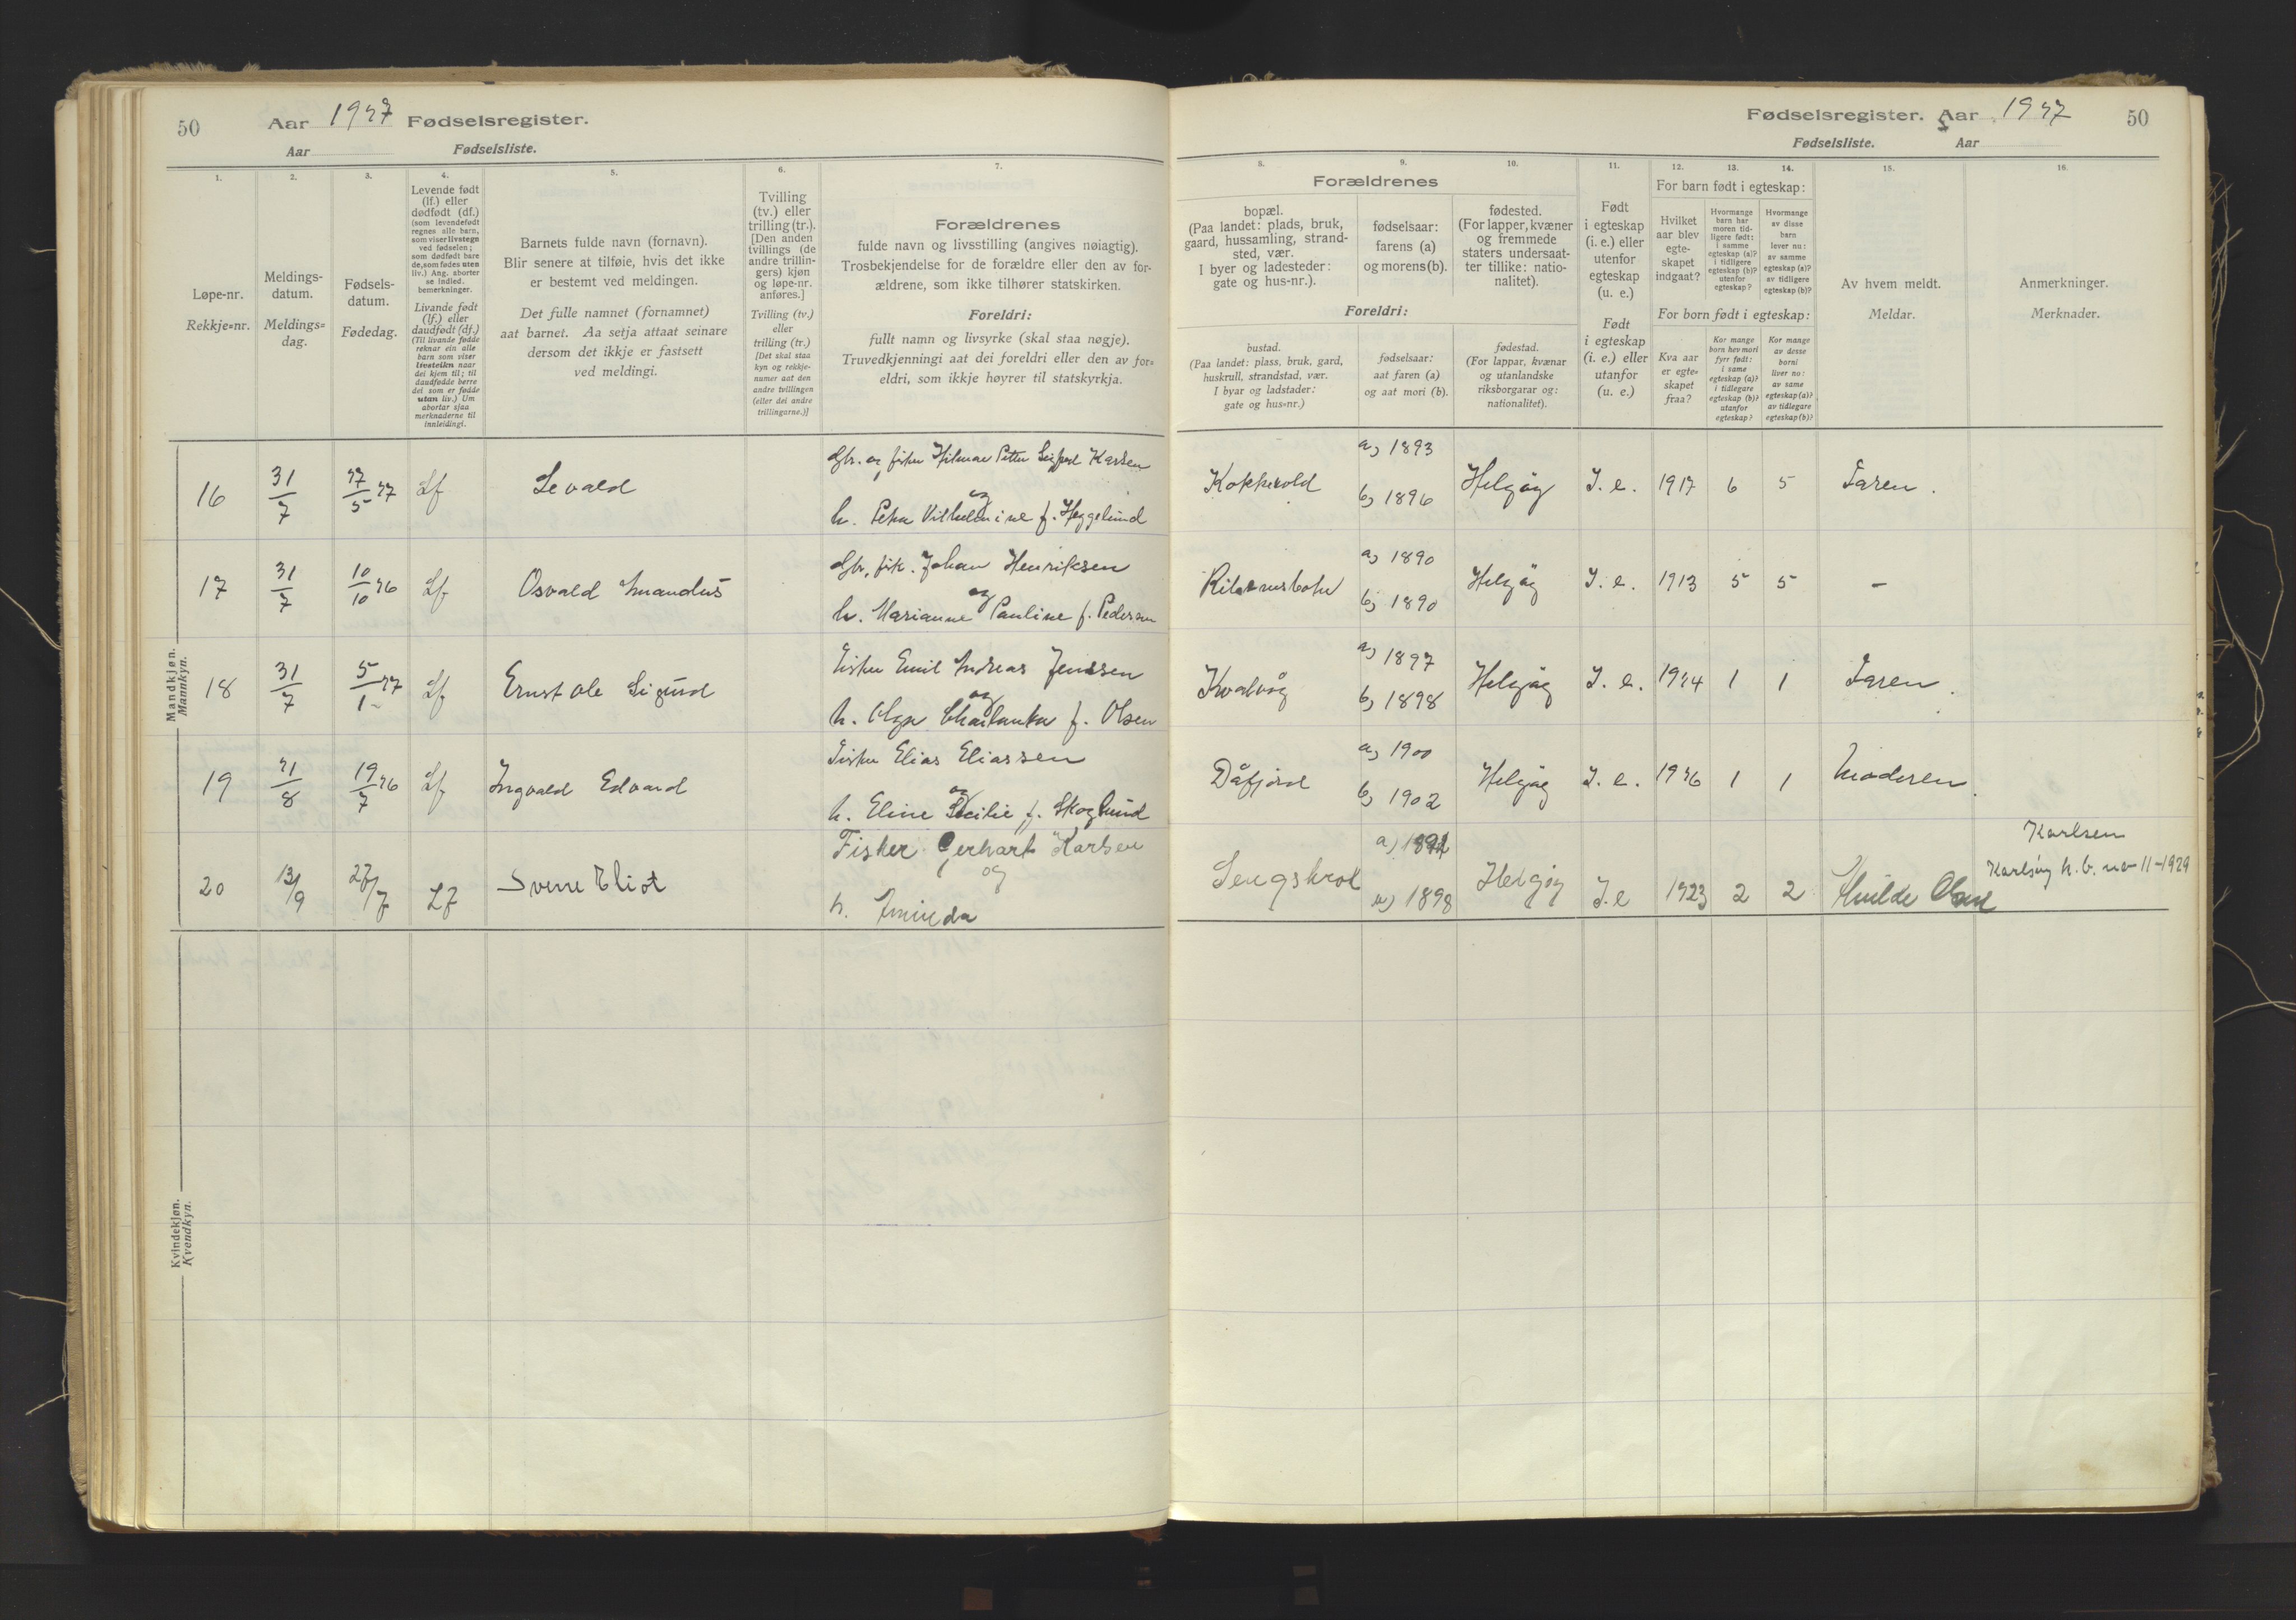 50
Aar 1927 Fødselsregister.
Aar Fødselsliste.
1.
2.
3.
4.
5.
6.
7.
Løpe-nr.
Rekkje=nr.
Meldings-
datum.
Meldings=
dag.
Fødsels-
datum.
Fødedag.
Levende født
(lf.) eller
dødfødt (df.)
(som levendefødt
regnes alle barn,
som viser livstegn
ved fødselen;
som dødfødt bare
de, som fødes uten
liv.) Ang. aborter
se indled.
bemerkninger.
Livande født
(lf.) eller
daudfødt (df.)
(Til livande fødde
reknar ein alle
barn som viser
livsteikn naar
dei kjem til; til
daudfødde berre
dei som er fødde
utan liv.) Um
abortar sjaa
merknaderne til
innleidingi.
Barnets fulde navn (fornavn).
Blir senere at tilføie, hvis det ikke
er bestemt ved meldingen.
Det fulle namnet (fornamnet)
aat barnet. Aa setja attaat seinare
dersom det ikkje er fastsett
ved meldingi.
Tvilling
(tv.) eller
trilling (tr.).
[Den anden
tvillings (de
andre trillin-
gers) kjøn
og løpe-nr.
anføres.]
Tvilling (tv.)
eller
trilling (tr.)
[Det skal staa
kyn og rekkje-
numer aat den
andre tvillingen
(eller dei andre
trillingarne.)]
Forældrenes
fulde navn og livsstilling (angives nøiagtig).
Trosbekjendelse for de forældre eller den av for-
ældrene, som ikke tilhører statskirken.
Foreldri:
fullt namn og livsyrke (skal staa nøgje).
Truvedkjenningi aat dei foreldri eller den av for=
eldri, som ikkje høyrer til statskyrkja.
Mandkjøn.
Mannkyn.
16 31/7 27/5 27 Lf Sevald
Gbr. og fisker Hilmar Petter Karlsen
og
h. Vilhelmine f. Heggelund
17 31/7 10/10 26 Lf Osvald Amandus
Gbr. fisk. Johan Henriksen
og
h. Marianne Pauline f. Pedersen
18 31/7 5/1 27 Lf Ernst Ole Sigurd
Fisker Emil Andreas Jenssen
og
h. Olga f. Olsen
19 21/8 19/7 26 Lf Ingvald Edvard
Fisker Elias Eliassen
og
h. Eline f. Skoglund
20 13/9 27/7 Lf Sverre Eliot
Fisker Gerhart Karlsen
og
h.
Kvindekjøn.
Kvendkyn.
Fødselsregister. Aar 1927 50
Fødselsliste. Aar
8.
9.
10.
11.
12.
13.
14.
15.
16.
Forældrenes
bopæl.
(Paa landet: plads, bruk,
gaard, hussamling, strand-
sted, vær.
I byer og ladesteder:
gate og hus-nr.).
fødselsaar:
farens (a)
og morens (b).
fødested.
(For lapper, kvæner
og fremmede
staters undersaat-
ter tillike: natio-
nalitet).
Foreldri:
bustad.
(Paa landet: plass, bruk, gard,
huskrull, strandstad, vær.
I byar og ladstader:
gate og hus=nr.)
fødselsaar:
aat faren (a)
og aat mori (b).
fødestad.
(For lappar, kvænar
og utanlandske
riksborgarar og:
nationalitet).
Født
i egteskap
(i. e.) eller
utenfor
egteskap
(u. e.)
Født
i egteskap
(i. e.) eller
utanfor
(u. e.)
For barn født i egteskap:
Hvilket
aar blev
egte-
skapet
indgaat?
Hvormange
barn har
moren tid-
ligere født:
i samme
egteskap (a)?
i tidligere
egteskap (b)?
utenfor
egteskap?
Hvormange
av disse
barn
lever nu:
av samme
egteskap (a)?
av tidligere
egteskap (b)?
For born født i egteskap:
Kva aar
er egte=
skapet
fraa?
Kor mange
born hev mori
fyrr født:
i same
egteskap (a)?
i tidlegare
egteskap (b)?
utanfor
egteskap?
Kor mange
av desse
borni
liver no:
av same
egteskap (a)?
av tidlegare
egteskap (b)?
Av hvem meldt.
Meldar.
Anmerkninger.
Merknader.
a) 1893
Kokkevold Helgøy I. e. 1917 6 5 Faren.
b) 1896
a) 1890
Helgøy I. e. 1913 5 5 –
b) 1890
a) 1897
Kvalvåg Helgøy I. e. 1924 1 1 Faren.
b) 1898
a) 1900
Dåfjord Helgøy I. e. 1926 1 1 Moderen.
b) 1902
Karlsen
Karlsøy h. b. no 11-1929
Helgøy I.e 1923 2 2 Olsen
1898